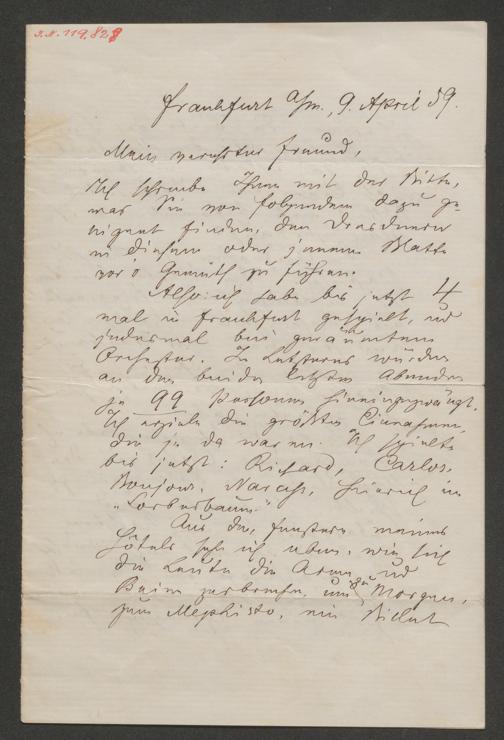 J.N. 119.828
Frankfurt a/m., 9. April 59.
Mein verehrter Freund,
Ich schreibe Ihnen mit der Bitte,
was Sie von folgendem dazu ge-
eignet finden, den Dresdnern
in diesem oder jenem Blatte
vor's Gemüth zu führen.
Also: ich habe bis jetzt 4
mal in Frankfurt gespielt, und
jedesmal bei geräumtem
Orchester. In Letzteres wurden
an den beiden letzten Abenden
je 99 Personen hineingezwängt.
Ich erziele die größten Einnahmen,
die je da waren. Ich spielte
bis jetzt: Richard, Carlos,
Bonjour, Narciss, Heinrich im
„Lorberbaum".
Aus den Fenstern meines
Hôtels sehe ich eben, wie sich
die Leute die Arme und
Beine zerbrechen, um zu Morgen,
zum Mephisto, ein Billet